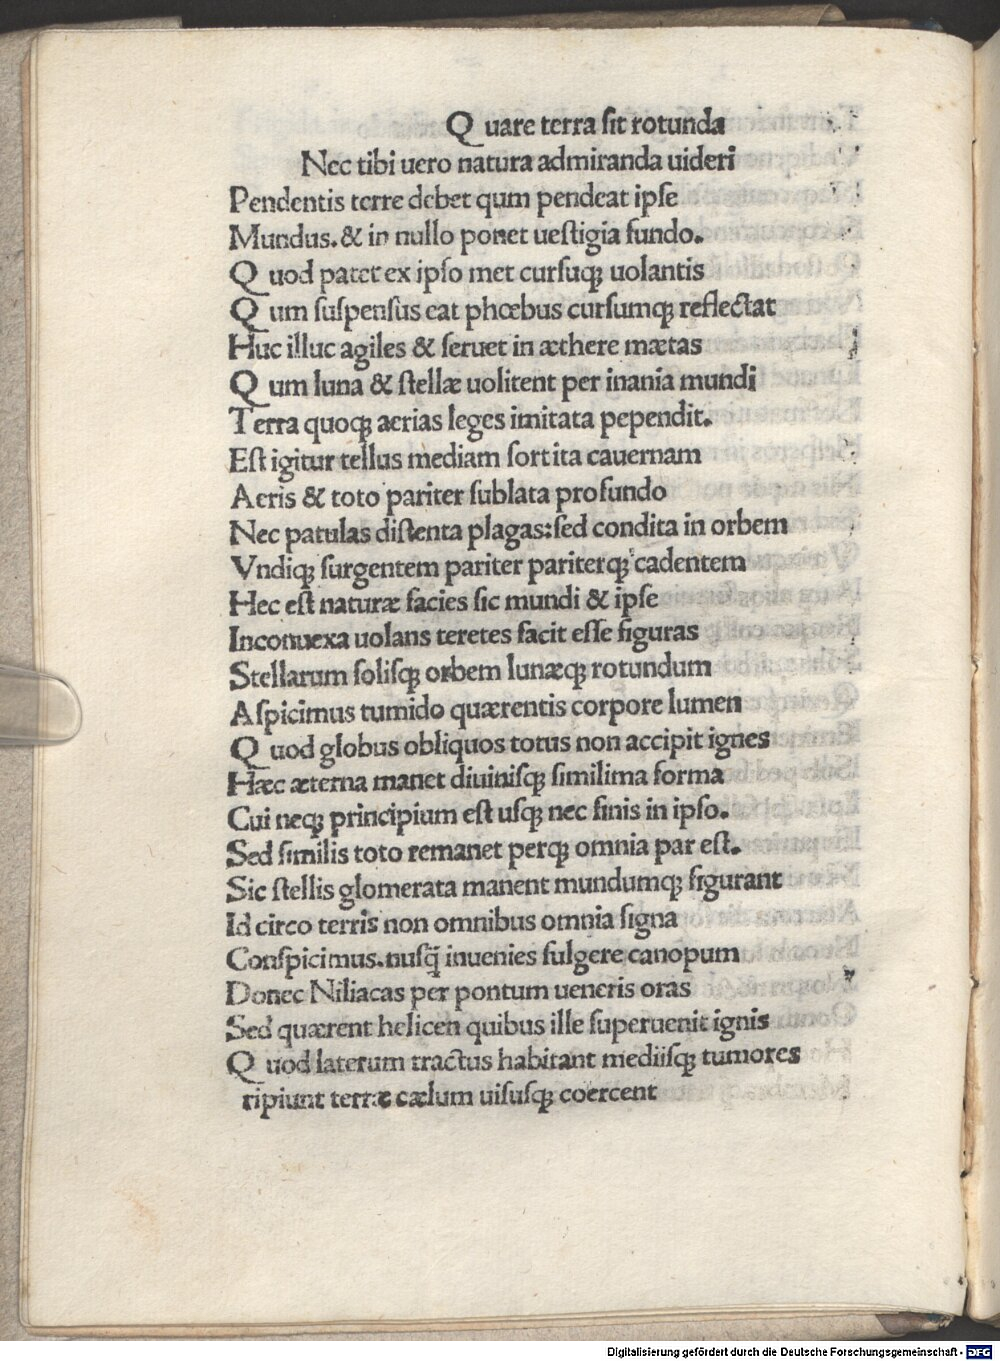 Quare terra sit rotunda
Nec tibi uero natura admiranda uideri
Pendentis terre debet qum pendeat ipse
Mundus. & in nullo ponet uestigia fundo.
Quod patet ex ipso met cursuqꝫ uolantis
Qum suspensus eat phœbus cursumqꝫ reflectat
Huc illuc agiles & seruet in æthere mætas
Qum luna & stellæ uolitent per inania mundi
Terra quoqꝫ aerias leges imitata pependit.
Est igitur tellus mediam sortita cauernam
Aeris & toto pariter sublata profundo
Nec patulas distenta plagas: sed condita in orbem
Vndiqꝫ surgentem pariter pariterqꝫ cadentem
Hec est naturæ facies sic mundi & ipse
Inconuexa uolans teretes facit esse figuras
Stellarum solisqꝫ orbem lunæqꝫ rotundum
Aspicimus tumido quærentis corpore lumen
Quod globus obliquos totus non accipit ignes
Hæc æterna manet diuinisqꝫ similima forma
Cui neqꝫ principium est usqꝫ nec finis in ipso.
Sed similis toto remanet perqꝫ omnia par est.
Sic stellis glomerata manent mundumqꝫ figurant
Id circo terris non omnibus omnia signa
Conspicimus. nusq̄ inuenies fulgere canopum
Donec Niliacas per pontum ueneris oras
Sed quærent helicen quibus ille superuenit ignis
Quod laterum tractus habitant mediisqꝫ tumores
ripiunt terræ cælum uisusqꝫ coercent
Digitalisierung gefördert durch die Deutsche Forschungsgemeinschaft - DFG